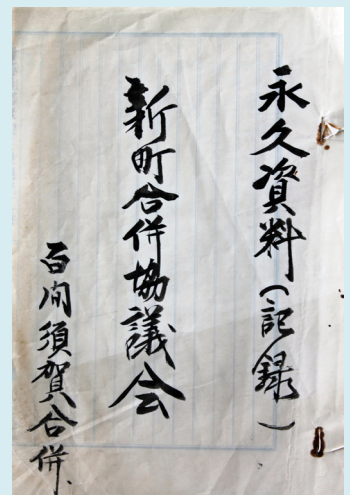 永久資料(記録)
新町合併協議会
百间須賀合併、